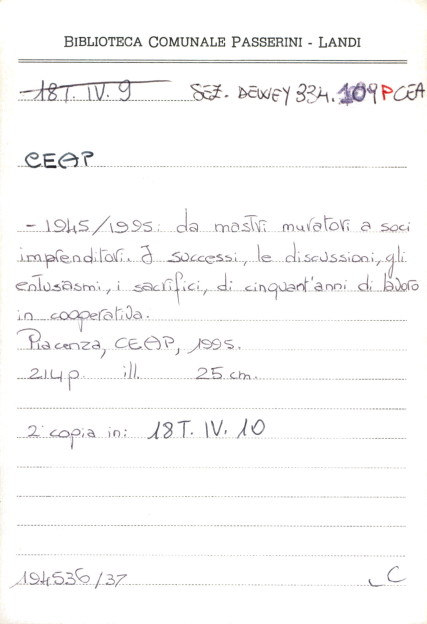 BIBLIOTECA COMUNALE PASSERINI - LANDI
18T. IV. 9 SEZ. DEWEY 334.109 P CEA
CEAP
- 1945/1995: da mastri muratori a soci
imprenditori. I successi, le discussioni, gli
entusasmi, i sacrifici, di cinquant'anni di lavoro
in cooperativa.
Piacenza, CEAP, 1995.
214 p. ill. 25 cm.
2ª copia in: 18T. IV. 10
194536/37 C